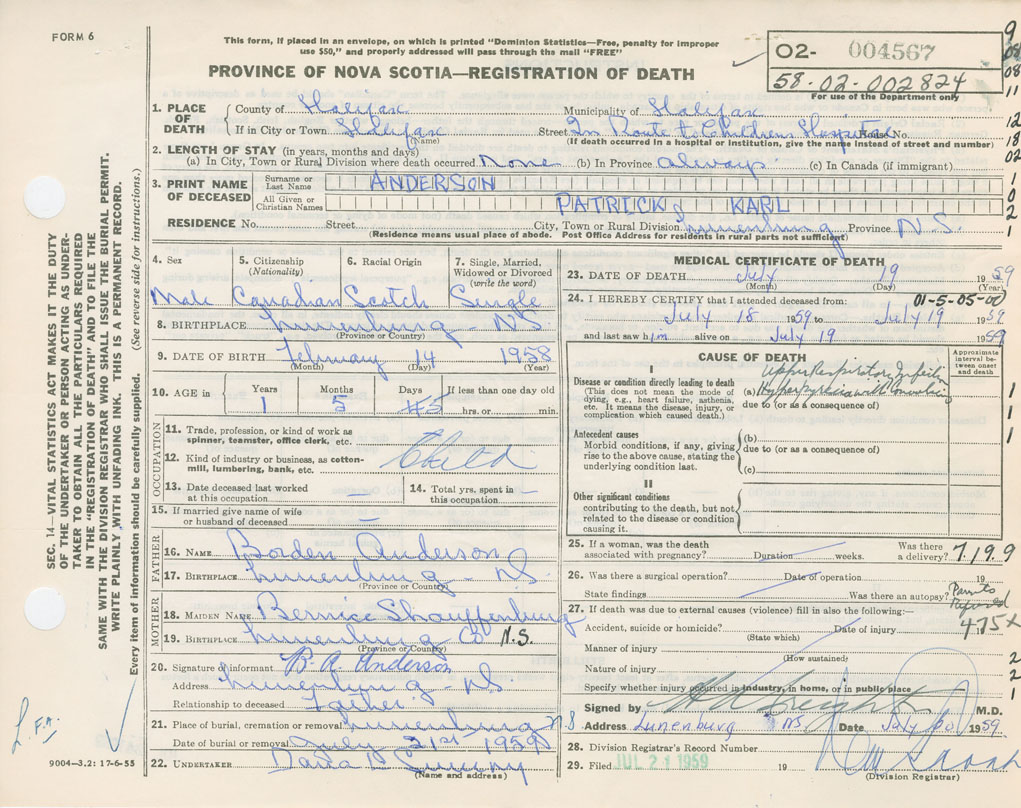 FORM 6
This form, if placed in an envelope, on which is printed "Dominion Statistics—Free, penalty for improper
use $50," and properly addressed will pass through the mail "FREE"
PROVINCE OF NOVA SCOTIA—REGISTRATION OF DEATH
02- 004567
58-02-002824
For use of the Department only
1. PLACE OF DEATH
County of Halifax Municipality of Halifax
If in City or Town Halifax Street In Route to Childrens Hospital House No.
(Name) (If death occurred in a hospital or institution, give the name instead of street and number)
2. LENGTH OF STAY (in years, months and days)
(a) In City, Town or Rural Division where death occurred None (b) In Province always (c) In Canada (if immigrant)
3. PRINT NAME OF DECEASED
Surname or Last Name ANDERSON
All Given or Christian Names PATRICK KARL
RESIDENCE No. Street City, Town or Rural Division Lunenburg Province N.S.
(Residence means usual place of abode. Post Office Address for residents in rural parts not sufficient)
4. Sex 5. Citizenship (Nationality) 6. Racial Origin 7. Single, Married, Widowed or Divorced (write the word)
Male Canadian Scotch Single
8. BIRTHPLACE Lunenburg - N.S.
(Province or Country)
9. DATE OF BIRTH February 14 1958
(Month) (Day) (Year)
10. AGE in Years Months Days If less than one day old
1 5 5 hrs. or min.
OCCUPATION
11. Trade, profession, or kind of work as
spinner, teamster, office clerk, etc.
12. Kind of industry or business, as cotton-
mill, lumbering, bank, etc. Child
13. Date deceased last worked
at this occupation
14. Total yrs. spent in
this occupation
15. If married give name of wife
or husband of deceased
FATHER
16. NAME Borden Anderson
17. BIRTHPLACE Lunenburg - NS
(Province or Country)
MOTHER
18. MAIDEN NAME Bernice
19. BIRTHPLACE Lunenburg Co N.S.
(Province or Country)
20. Signature of informant B. A. Anderson
Address Lunenburg - NS.
Relationship to deceased Father
21. Place of burial, cremation or removal Lunenburg NS
Date of burial or removal July 21st 1959
22. UNDERTAKER
(Name and address)
MEDICAL CERTIFICATE OF DEATH
23. DATE OF DEATH July 19 1959
(Month) (Day) (Year)
24. I HEREBY CERTIFY that I attended deceased from: 01-5-05-00
July 18 1959 to July 19 1959
and last saw him alive on July 19 1959
CAUSE OF DEATH
Approximate interval between onset and death
I
Disease or condition directly leading to death
(This does not mean the mode of dying, e.g., heart failure, asthenia, etc. It means the disease, injury, or complication which caused death.)
Upper Respiratory Infection
(a) Hyperpyrexia with
due to (or as a consequence of)
Antecedent causes
Morbid conditions, if any, giving rise to the above cause, stating the underlying condition last.
(b)
due to (or as a consequence of)
(c)
II
Other significant conditions
contributing to the death, but not related to the disease or condition causing it.
25. If a woman, was the death
associated with pregnancy? Duration weeks. Was there a delivery? 7,199
26. Was there a surgical operation? Date of operation 19
State findings Was there an autopsy? Parents refused
27. If death was due to external causes (violence) fill in also the following:— 475x
Accident, suicide or homicide? Date of injury
(State which)
Manner of injury
(How sustained)
Nature of injury
Specify whether injury occurred in industry, in home, or in public place
Signed by M.D.
Address Lunenburg NS Date July 20 1959
28. Division Registrar's Record Number
29. Filed JUL 21 1959 19
(Division Registrar)
SEC. 14—VITAL STATISTICS ACT MAKES IT THE DUTY
OF THE UNDERTAKER OR PERSON ACTING AS UNDER-
TAKER TO OBTAIN ALL THE PARTICULARS REQUIRED
IN THE "REGISTRATION OF DEATH" AND TO FILE THE
SAME WITH THE DIVISION REGISTRAR WHO SHALL ISSUE THE BURIAL PERMIT.
WRITE PLAINLY WITH UNFADING INK. THIS IS A PERMANENT RECORD.
Every item of information should be carefully supplied. (See reverse side for instructions.)
9004—3.2: 17-6-55
9
08
08
11
12
18
02
1
0
2
1
1
1
1
2
2
1